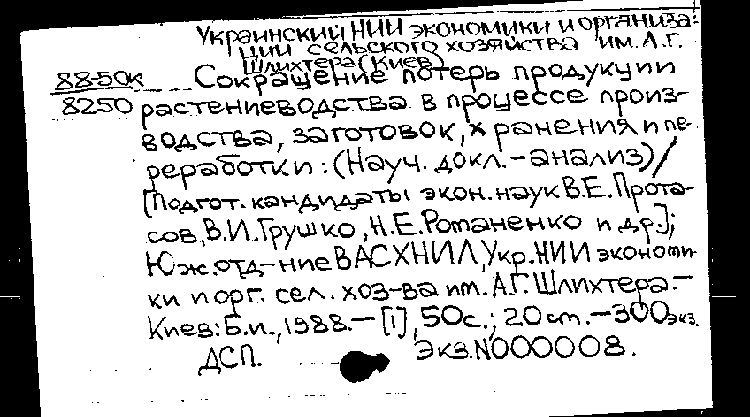 Украинский НИИ экономики и организа-
ции сельского хозяйства им. А.Г.
Шлихтера (Киев)
88-50к Сокращение потерь продукции
8250 растениеводства в процессе произ-
водства, заготовок, хранения и пе-
реработки: (Науч. докл.-анализ) /
[Подгот. кандидаты экон. наук В.Е. Прота-
сов, В.И. Грушко, Н.Е. Романенко и др.];
Юж. отд-ние ВАСХНИЛ, Укр. НИИ экономи-
ки и орг. сел. хоз-ва им. А.Г. Шлихтера.-
Киев: Б.и., 1988.- [1], 50с.; 20 см.-300 экз.
ДСП. Экз.N000008.